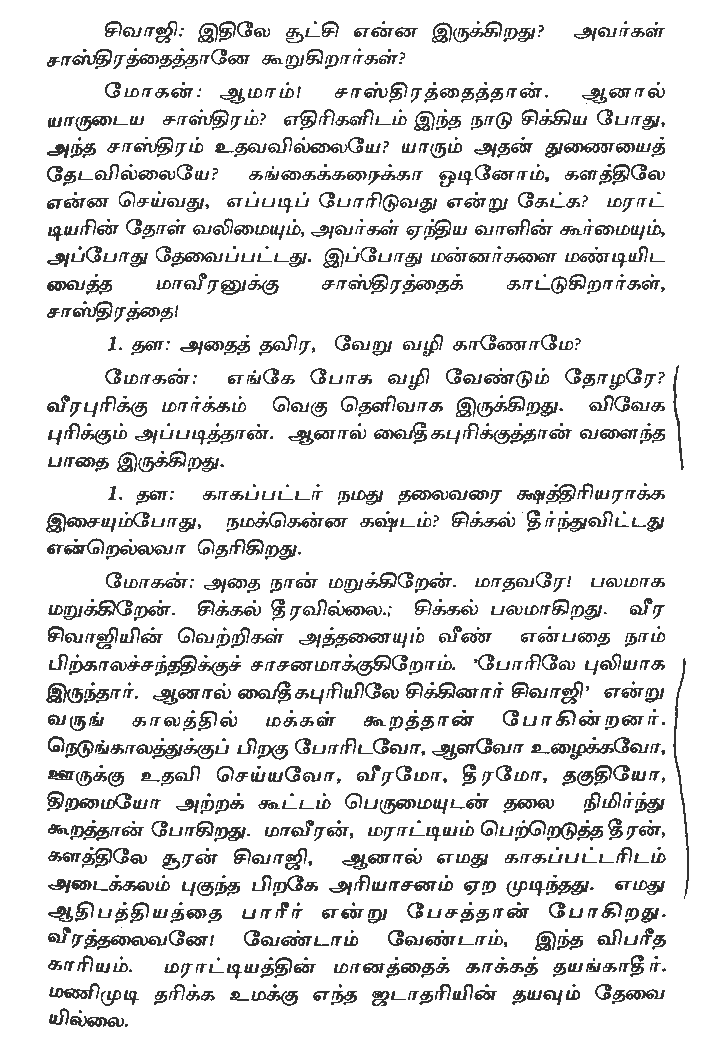 சிவாஜி: இதிலே சூட்சி என்ன இருக்கிறது? அவர்கள்
சாஸ்திரத்தைத்தானே கூறுகிறார்கள்?
மோகன்: ஆமாம்! சாஸ்திரத்தைத்தான். ஆனால்
யாருடைய சாஸ்திரம்? எதிரிகளிடம் இந்த நாடு சிக்கிய போது,
அந்த சாஸ்திரம் உதவவில்லையே? யாரும் அதன் துணையைத்
தேடவில்லையே? கங்கைக்கரைக்கா ஓடினோம், களத்திலே
என்ன செய்வது, எப்படிப் போரிடுவது என்று கேட்க? மராட்
டியரின் தோள் வலிமையும், அவர்கள் ஏந்திய வாளின் கூர்மையும்,
அப்போது தேவைப்பட்டது. இப்போது மன்னர்களை மண்டியிட
வைத்த மாவீரனுக்கு சாஸ்திரத்தைக் காட்டுகிறார்கள்,
சாஸ்திரத்தை!
1. தள: அதைத் தவிர, வேறு வழி காணோமே?
மோகன்: எங்கே போக வழி வேண்டும் தோழரே?
வீரபுரிக்கு மார்க்கம் வெகு தெளிவாக இருக்கிறது. விவேக
புரிக்கும் அப்படித்தான். ஆனால் வைதீகபுரிக்குத்தான் வளைந்த
பாதை இருக்கிறது.
1. தள: காகப்பட்டர் நமது தலைவரை க்ஷத்திரியராக்க
இசையும்போது, நமக்கென்ன கஷ்டம்? சிக்கல் தீர்ந்துவிட்டது
என்றெல்லவா தெரிகிறது.
மோகன்: அதை நான் மறுக்கிறேன். மாதவரே! பலமாக
மறுக்கிறேன். சிக்கல் தீரவில்லை.; சிக்கல் பலமாகிறது. வீர
சிவாஜியின் வெற்றிகள் அத்தனையும் வீண் என்பதை நாம்
பிற்காலச்சந்ததிக்குச் சாசனமாக்குகிறோம். 'போரிலே புலியாக
இருந்தார். ஆனால் வைதீகபுரியிலே சிக்கினார் சிவாஜி' என்று
வருங் காலத்தில் மக்கள் கூறத்தான் போகின்றனர்.
நெடுங்காலத்துக்குப் பிறகு போரிடவோ, ஆளவோ உழைக்கவோ,
ஊருக்கு உதவி செய்யவோ, வீரமோ, தீரமோ, தகுதியோ,
திறமையோ அற்றக் கூட்டம் பெருமையுடன் தலை நிமிர்ந்து
கூறத்தான் போகிறது. மாவீரன், மராட்டியம் பெற்றெடுத்த தீரன்,
களத்திலே சூரன் சிவாஜி, ஆனால் எமது காகப்பட்டரிடம்
அடைக்கலம் புகுந்த பிறகே அரியாசனம் ஏற முடிந்தது. எமது
ஆதிபத்தியத்தை பாரீர் என்று பேசத்தான் போகிறது.
வீரத்தலைவனே! வேண்டாம் வேண்டாம், இந்த விபரீத
காரியம். மராட்டியத்தின் மானத்தைக் காக்கத் தயங்காதீர்.
மணிமுடி தரிக்க உமக்கு எந்த ஜடாதரியின் தயவும் தேவை
யில்லை.